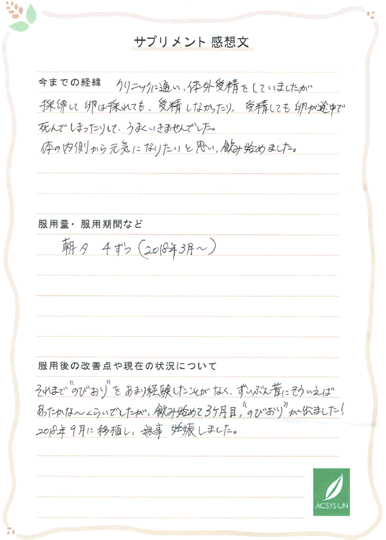 サプリメント 感想文
今までの経緯 クリニックに通い、体外受精をしていましたが
採卵して卵は採れても、受精しなかったり、受精しても卵が途中で
死んでしまったりして、うまくいきませんでした。
体の内側から元気になりたいと思い、飲み始めました。
服用量・服用期間など
朝夕 4ずつ (2018年3月〜)
服用後の改善点や現在の状況について
それまで"のびおり"をあまり経験したことがなく、ずいぶん昔にそういえば
あたかな〜くらいでしたが、飲み始めて3ヶ月目、"のびおり"が出ました!
2018年9月に移植し、無事 妊娠しました。
ACSYSUN